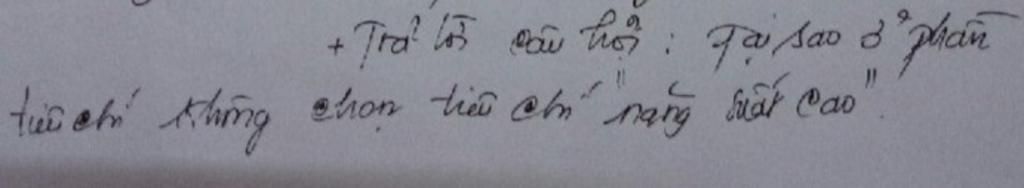 + Trả lời câu hỏi : Tại sao ở phần
tiêu chí không chọn tiêu chí "năng suất cao".